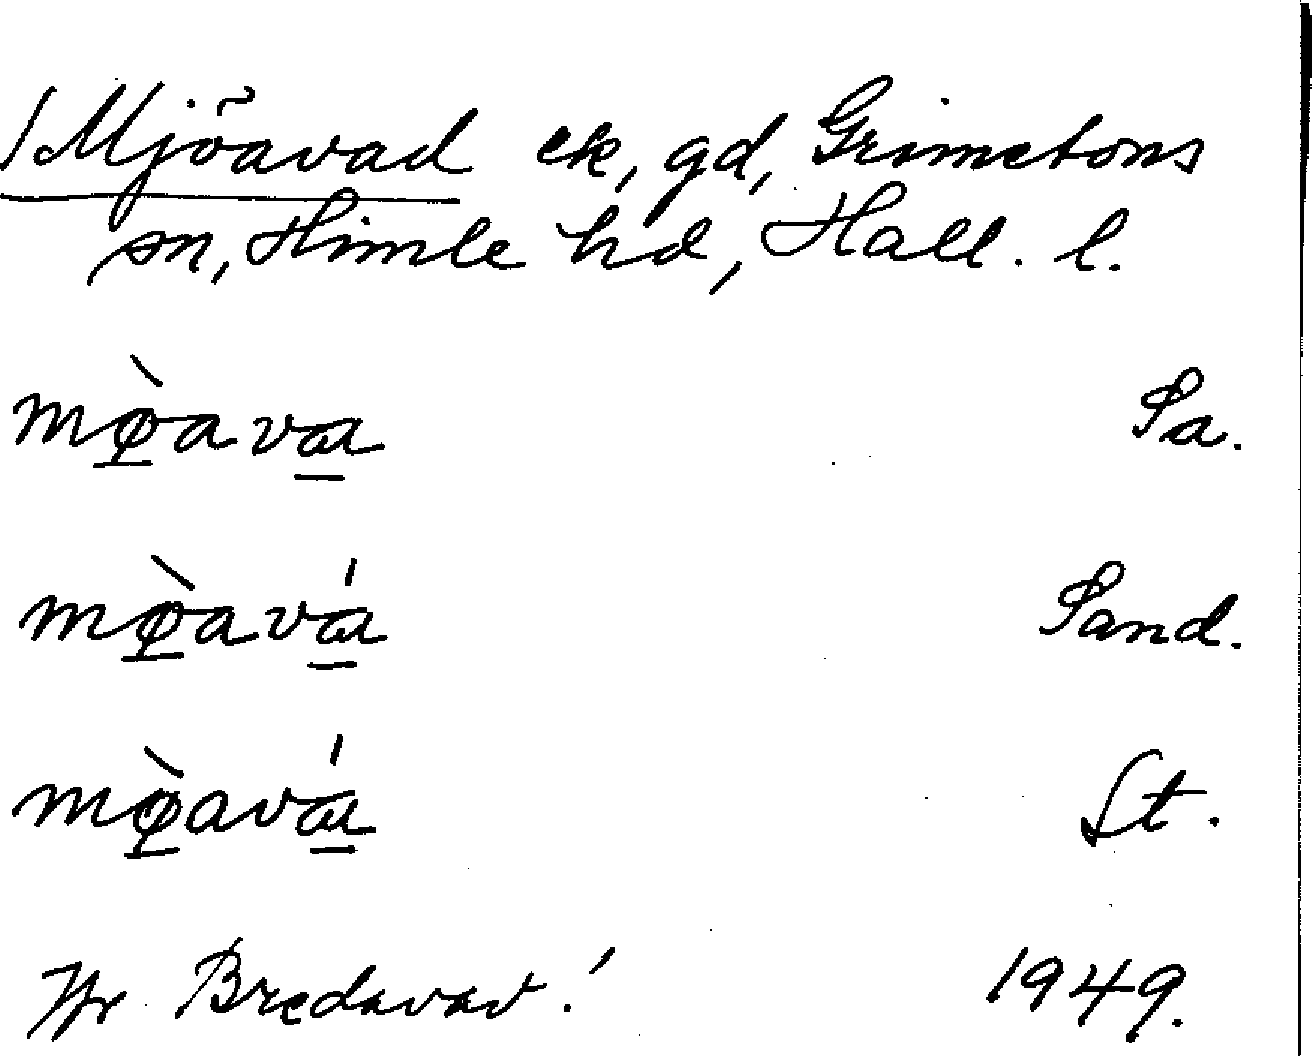 /Mjöavad ek, gd, Grimetons
sn, Himle hd, Hall. l.
mø̀ava Sa.
mø̀avá Sand.
mø̀avá St.
Jfr Bredavad!
1949.